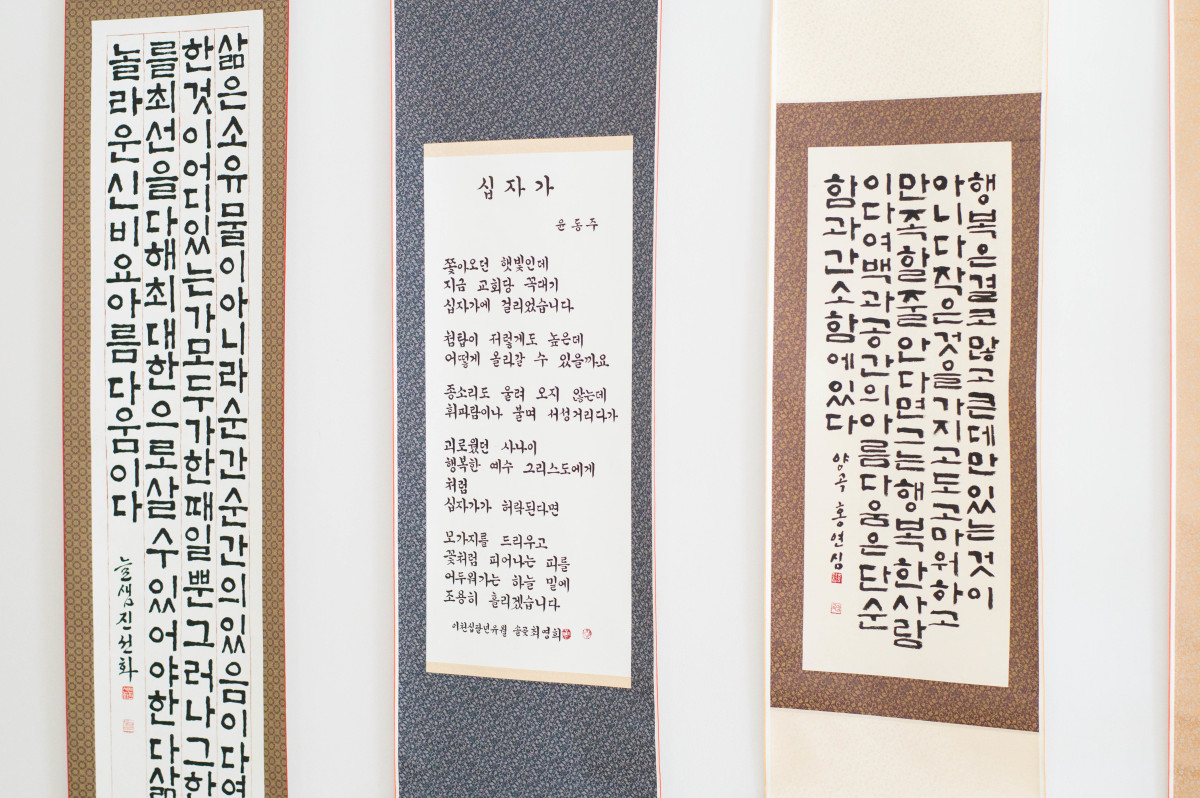 삶은소유물이아니라순간순간의있음이다
한것이어디있는가모두가한때일뿐그러나그한
를최선을다해최대한으로살수있어야한다삶
놀라운신비요아름다움이다
늘샘진선화
십자가
윤동주
쫓아오던 햇빛인데
지금 교회당 꼭대기
십자가에 걸리었습니다
첨탑이 저렇게도 높은데
어떻게 올라갈 수 있을까요
종소리도 울려 오지 않는데
휘파람이나 불며 서성거리다가
괴로웠던 사나이
행복한 예수 그리스도에게
처럼
십자가가 허락된다면
모가지를 드리우고
꽃처럼 피어나는 피를
어두워가는 하늘 밑에
조용히 흘리겠습니다
이천십팔년유월 최영희
행복은결코많고큰데만있는것이
아니다작은것을가지고도고마워하고
만족할줄안다면그는행복한사람
이다여백과공간의아름다움은단순
함과간소함에있다
양곡 홍연심